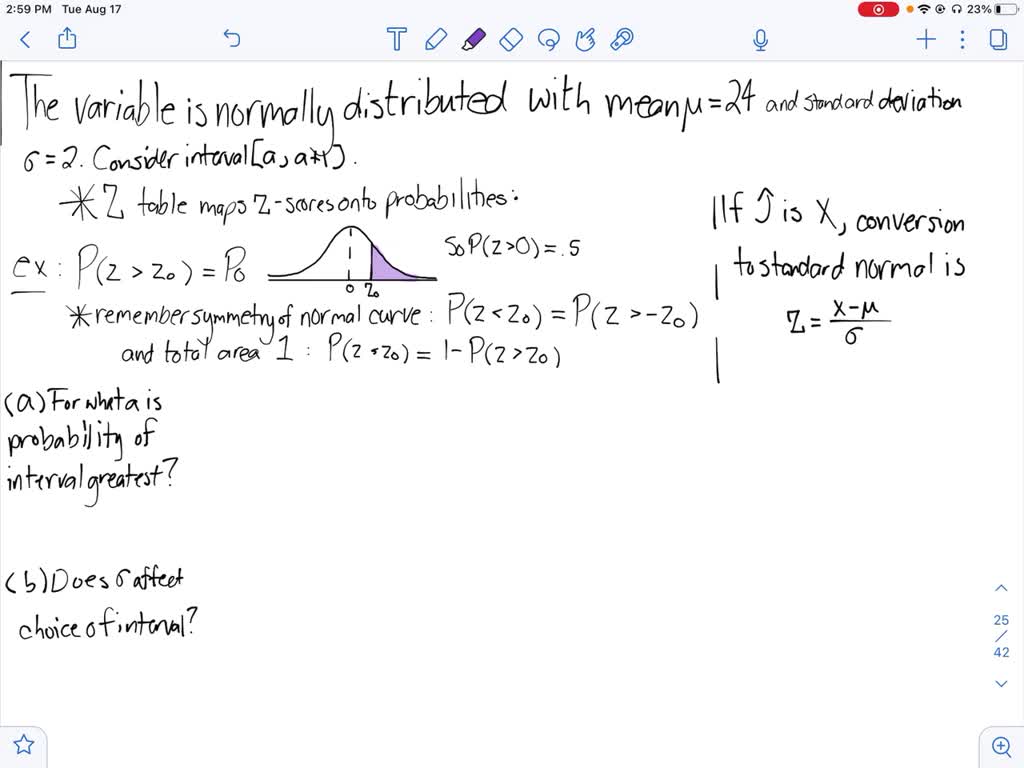 2:59 PM Tue Aug 17
23%
The variable is normally distributed with mean μ = 24 and standard deviation
σ = 2. Consider interval [a, a+1].
* Z table maps Z-scores onto probabilities:
ex: P(Z > Z₀) = P₀
0 Z₀
So P(Z>0) = .5
* remember symmetry of normal curve: P(Z < Z₀) = P(Z > -Z₀)
and total area 1: P(Z < Z₀) = 1 - P(Z > Z₀)
If J is X, conversion
to standard normal is
Z = (X-μ)/σ
(a) For what a is
probability of
interval greatest?
(b) Does σ affect
choice of interval?
25
/
42